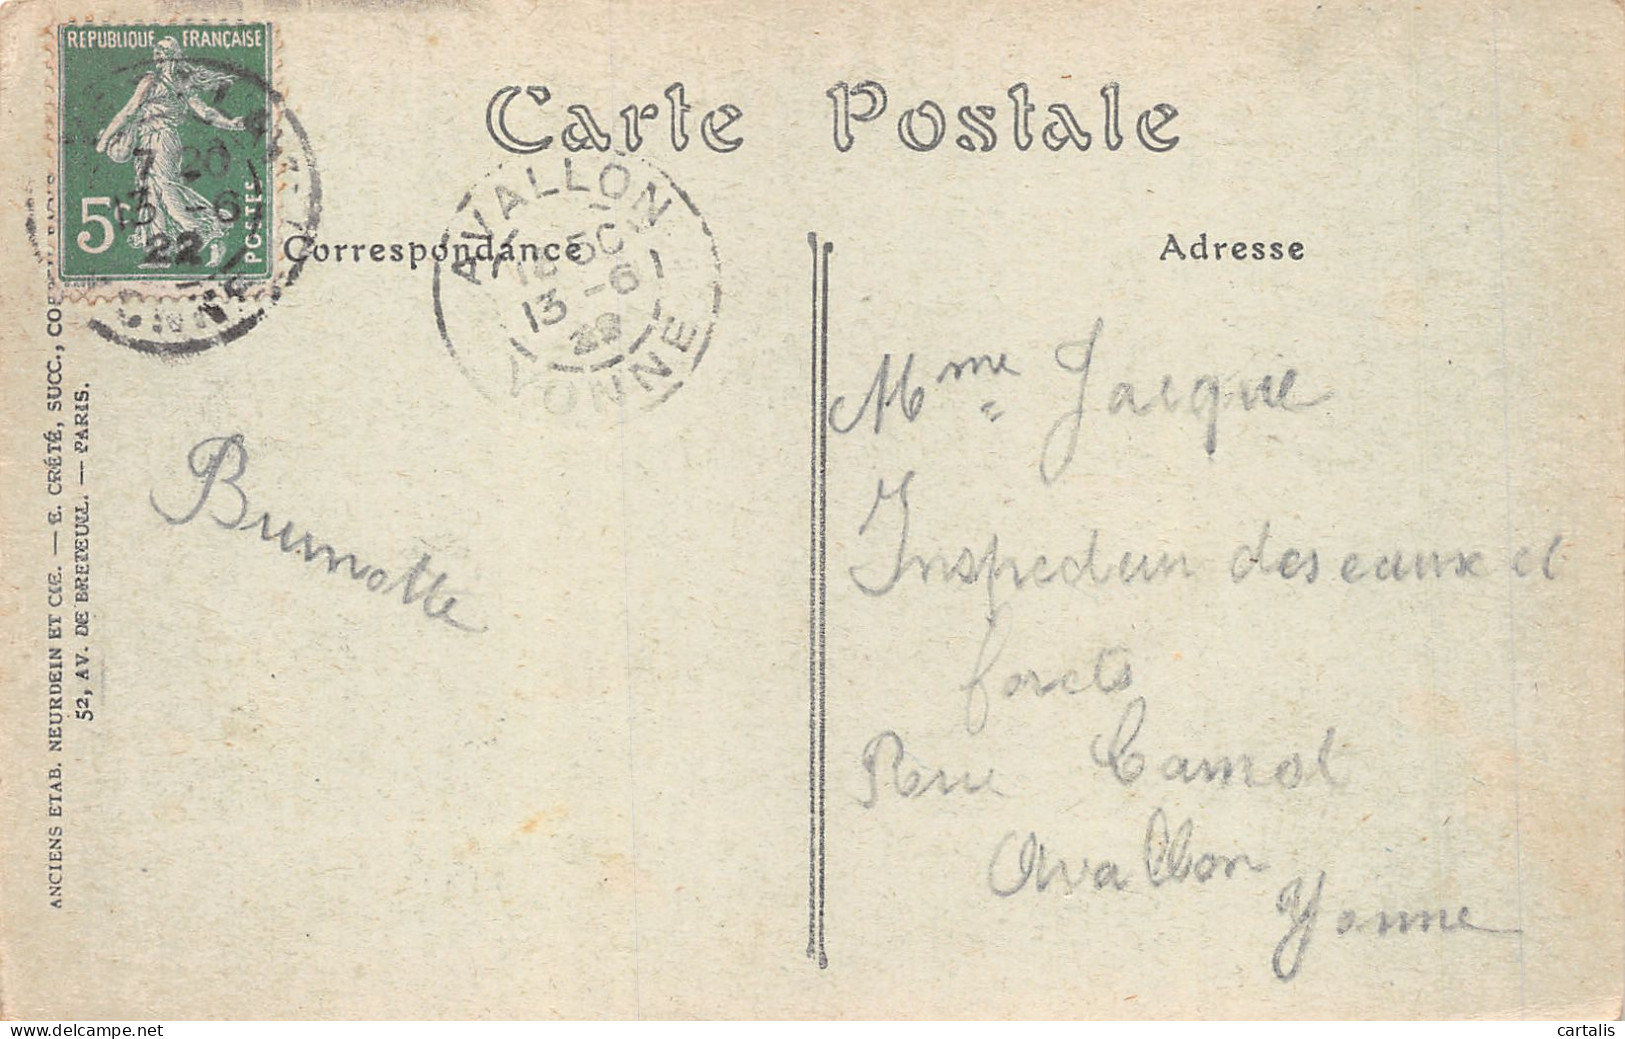 REPUBLIQUE FRANÇAISE
5c
POSTES
7 20
13 -6
22
Carte Postale
AVALLON
13 -6
22
YONNE
Correspondance
Adresse
Brunotte
Mme Jacque
Inspecteur des eaux et
forets
Rue Carnot
Avallon
Yonne
ANCIENS ETAB. NEURDEIN ET CIE. — E. CRÉTÉ, SUCC.,
52, AV. DE BRETEUIL. — PARIS.
cartalis